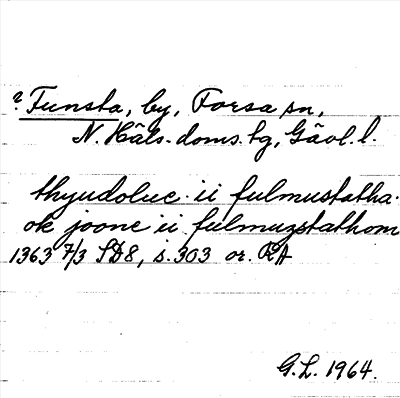 ? Funsta, by, Forsa sn,
N. Häls. doms. tg, Gävl. l.
thyudoluc. ii fulmustatha.
ok joone ii fulmugstathom
1363 7/3 SD8, s. 303 or. RA
G. L. 1964.